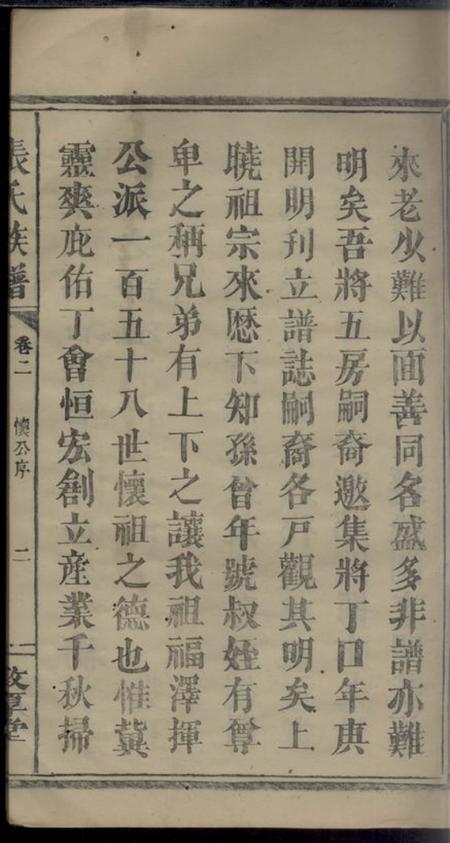 來老少難以面善同名盛多非譜亦難
明矣吾將五房嗣裔邀集將丁口年庚
開明刊立譜誌嗣裔各戸觀其明矣上
曉祖宗來歷下知孫曾年號叔姪有尊
卑之稱兄弟有上下之讓我祖福澤揮
公派一百五十八世懷祖之德也惟冀
靈爽庇佑丁會恒宏創立産業千秋掃
張氏族譜 卷二 懷公序 二 敦厚堂